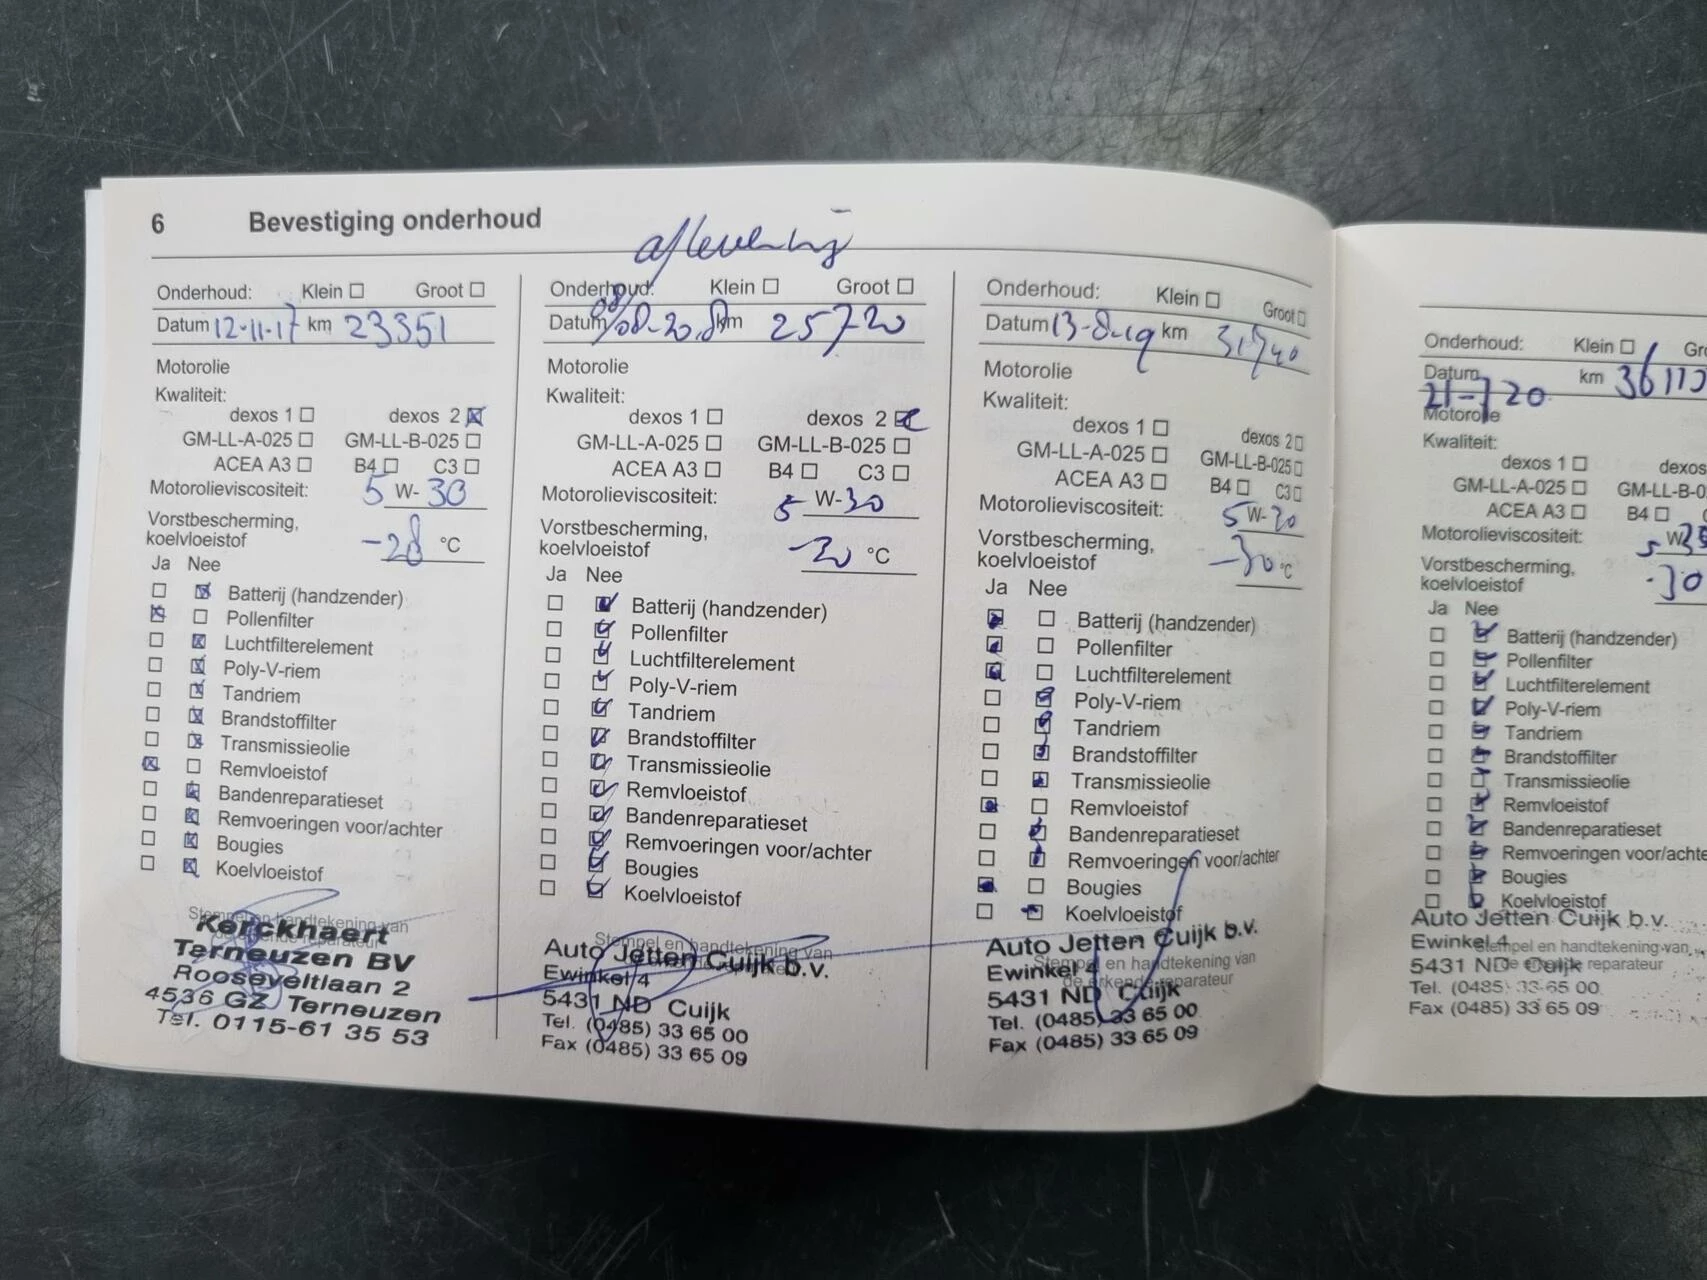 6 Bevestiging onderhoud
aflevering
Onderhoud: Klein ☐ Groot ☐
Datum 12-11-17 km 23351
Motorolie
Kwaliteit:
dexos 1 ☐ dexos 2 ☒
GM-LL-A-025 ☐ GM-LL-B-025 ☐
ACEA A3 ☐ B4 ☐ C3 ☐
Motorolieviscositeit: 5 W-30
Vorstbescherming,
koelvloeistof -28 °C
Ja Nee
☐ ☒ Batterij (handzender)
☒ ☐ Pollenfilter
☐ ☒ Luchtfilterelement
☐ ☒ Poly-V-riem
☐ ☒ Tandriem
☐ ☒ Brandstoffilter
☐ ☒ Transmissieolie
☒ ☐ Remvloeistof
☐ ☒ Bandenreparatieset
☐ ☒ Remvoeringen voor/achter
☐ ☒ Bougies
☐ ☒ Koelvloeistof
Stempel en handtekening van
de erkende reparateur
Kerckhaert
Terneuzen BV
Rooseveltlaan 2
4536 GZ Terneuzen
Tel. 0115-61 35 53
Onderhoud: Klein ☐ Groot ☐
Datum km 25720
Motorolie
Kwaliteit:
dexos 1 ☐ dexos 2 ☒
GM-LL-A-025 ☐ GM-LL-B-025 ☐
ACEA A3 ☐ B4 ☐ C3 ☐
Motorolieviscositeit: 5 W-30
Vorstbescherming,
koelvloeistof -30 °C
Ja Nee
☐ ☒ Batterij (handzender)
☐ ☒ Pollenfilter
☐ ☒ Luchtfilterelement
☐ ☒ Poly-V-riem
☐ ☒ Tandriem
☐ ☒ Brandstoffilter
☐ ☒ Transmissieolie
☐ ☒ Remvloeistof
☐ ☒ Bandenreparatieset
☐ ☒ Remvoeringen voor/achter
☐ ☒ Bougies
☐ ☒ Koelvloeistof
Stempel en handtekening van
Auto Jetten Cuijk b.v.
Ewinkel 4
5431 ND Cuijk
Tel. (0485) 33 65 00
Fax (0485) 33 65 09
Onderhoud: Klein ☐ Groot ☐
Datum 13-8-19 km 31740
Motorolie
Kwaliteit:
dexos 1 ☐ dexos 2 ☐
GM-LL-A-025 ☐ GM-LL-B-025 ☐
ACEA A3 ☐ B4 ☐ C3 ☐
Motorolieviscositeit: 5 W-30
Vorstbescherming,
koelvloeistof -30 °C
Ja Nee
☒ ☐ Batterij (handzender)
☒ ☐ Pollenfilter
☒ ☐ Luchtfilterelement
☐ ☒ Poly-V-riem
☐ ☒ Tandriem
☐ ☒ Brandstoffilter
☐ ☒ Transmissieolie
☒ ☐ Remvloeistof
☐ ☒ Bandenreparatieset
☐ ☒ Remvoeringen voor/achter
☒ ☐ Bougies
☐ ☒ Koelvloeistof
Auto Jetten Cuijk b.v.
Stempel en handtekening van
Ewinkel 4
de erkende reparateur
5431 ND Cuijk
Tel. (0485) 33 65 00
Fax (0485) 33 65 09
Onderhoud: Klein ☐ Gr
Datum 21-7 20 km
Motorolie
Kwaliteit:
dexos 1 ☐ dexos
GM-LL-A-025 ☐ GM-LL-B-0
ACEA A3 ☐ B4 ☐
Motorolieviscositeit: 5 W
Vorstbescherming,
koelvloeistof -30
Ja Nee
☐ ☒ Batterij (handzender)
☐ ☒ Pollenfilter
☐ ☒ Luchtfilterelement
☐ ☒ Poly-V-riem
☐ ☒ Tandriem
☐ ☒ Brandstoffilter
☐ ☒ Transmissieolie
☐ ☒ Remvloeistof
☐ ☒ Bandenreparatieset
☐ ☒ Remvoeringen voor/achte
☐ ☒ Bougies
☐ ☒ Koelvloeistof
Auto Jetten Cuijk b.v.
Ewinkel 4
Stempel en handtekening van
5431 ND Cuijk
de erkende reparateur
Tel. (0485) 33 65 00
Fax (0485) 33 65 09